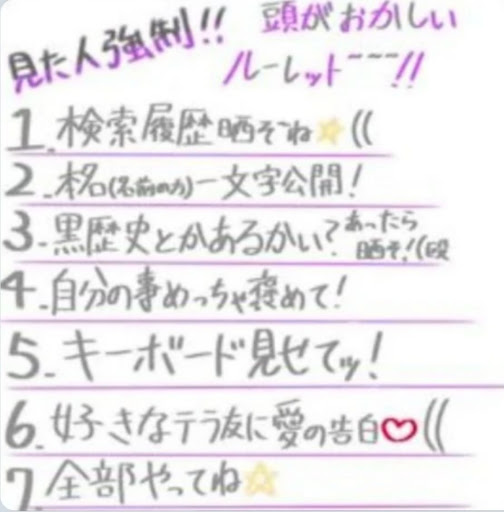 見た人強制!! 頭がおかしい
ルーレット~~~!!
1.検索履歴晒そーね☆((
2.本名(名前の方)一文字公開!
3.黒歴史とかあるかい?あったら
晒そ!(殴
4.自分の事めっちゃ褒めて!
5.キーボード見せてッ!
6.好きなテラ友に愛の告白♡((
7.全部やってね☆